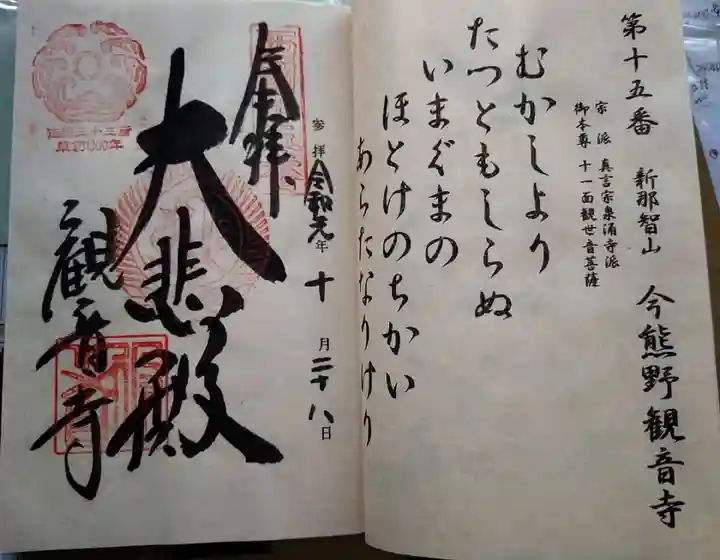 第十五番 新那智山 今熊野観音寺
宗派 真言宗泉涌寺派
御本尊 十一面観世音菩薩
むかしより
たつともしらぬ
いまぐまの
ほとけのちかい
あらたなりけり
参拝 令和元年 十月 二十八日
奉拝
大悲殿
観音寺